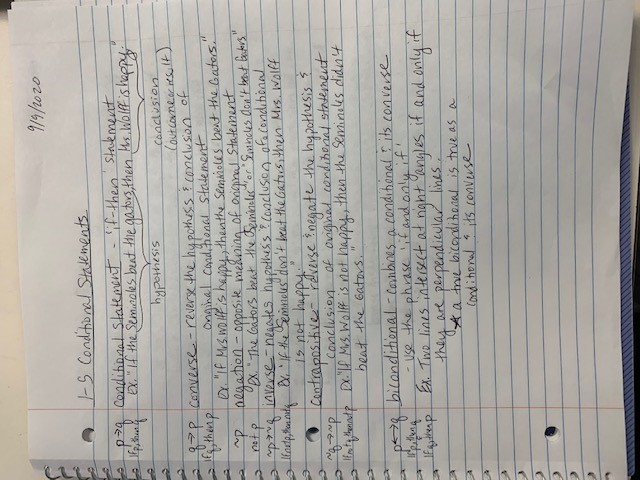 9/9/2020
1-5 Conditional Statements
p→q conditional statement - "if-then" statement
If p, then q Ex. "If the Seminoles beat the gators, then Mrs. Wolff is happy."
hypothesis conclusion
(outcome or result)
q→p converse - reverse the hypothesis & conclusion of
If q, then p original conditional statement
Ex. "If Mrs. Wolff is happy, then the Seminoles beat the Gators."
~p negation - opposite meaning of original statement
not p Ex. "The Gators beat the Seminoles" or "Seminoles don't beat Gators"
~p→~q inverse - negates hypothesis & conclusion of a conditional
If not p, then not q Ex. "If the Seminoles don't beat the Gators, then Mrs. Wolff
is not happy."
contrapositive - reverse & negate the hypothesis &
~q→~p conclusion of original conditional statement
If not q then not p Ex. "If Mrs. Wolff is not happy, then the Seminoles didn't
beat the Gators."
p↔q biconditional - combines a conditional & its converse
If p, then q - use the phrase 'if and only if'
If q, then p Ex. Two lines intersect at right angles if and only if
they are perpendicular lines.
★ a true biconditional is true as a
conditional & its converse